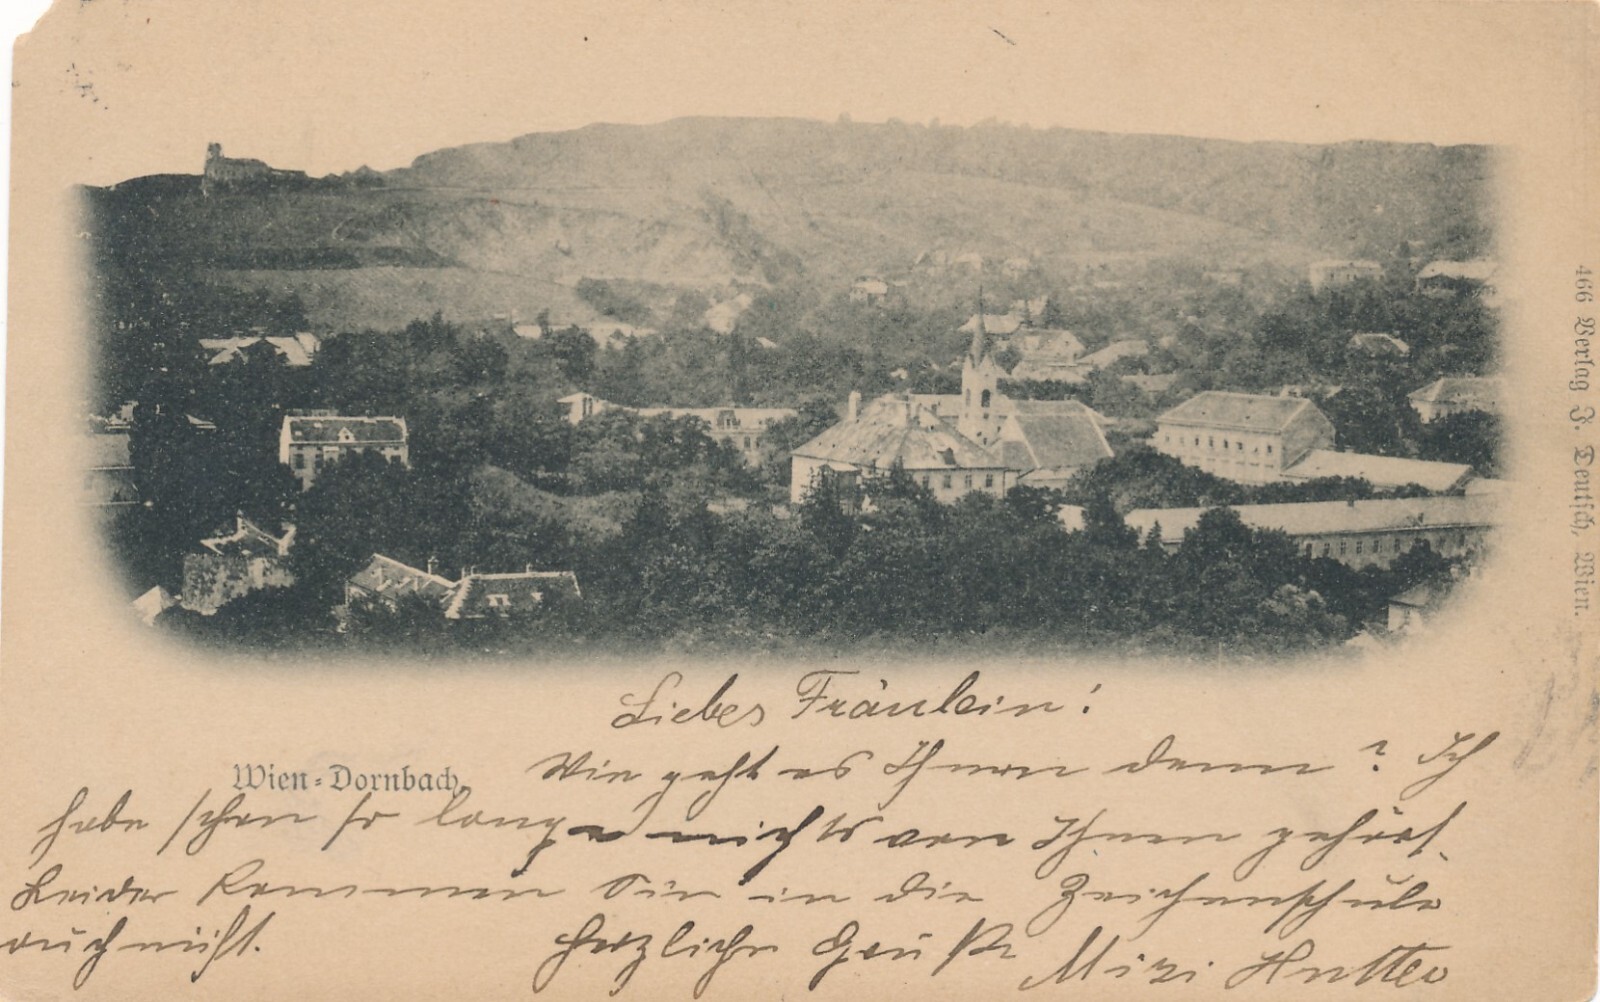 466 Verlag J. Deutsch, Wien.
Liebes Fräulein!
Wien-Dornbach
Wie geht es Ihnen denn? Ich
habe schon so lange nichts von Ihnen gehört.
Leider kommen Sie in die Zeichenschule
auch nicht. Herzliche Grüße Mizi Hutter